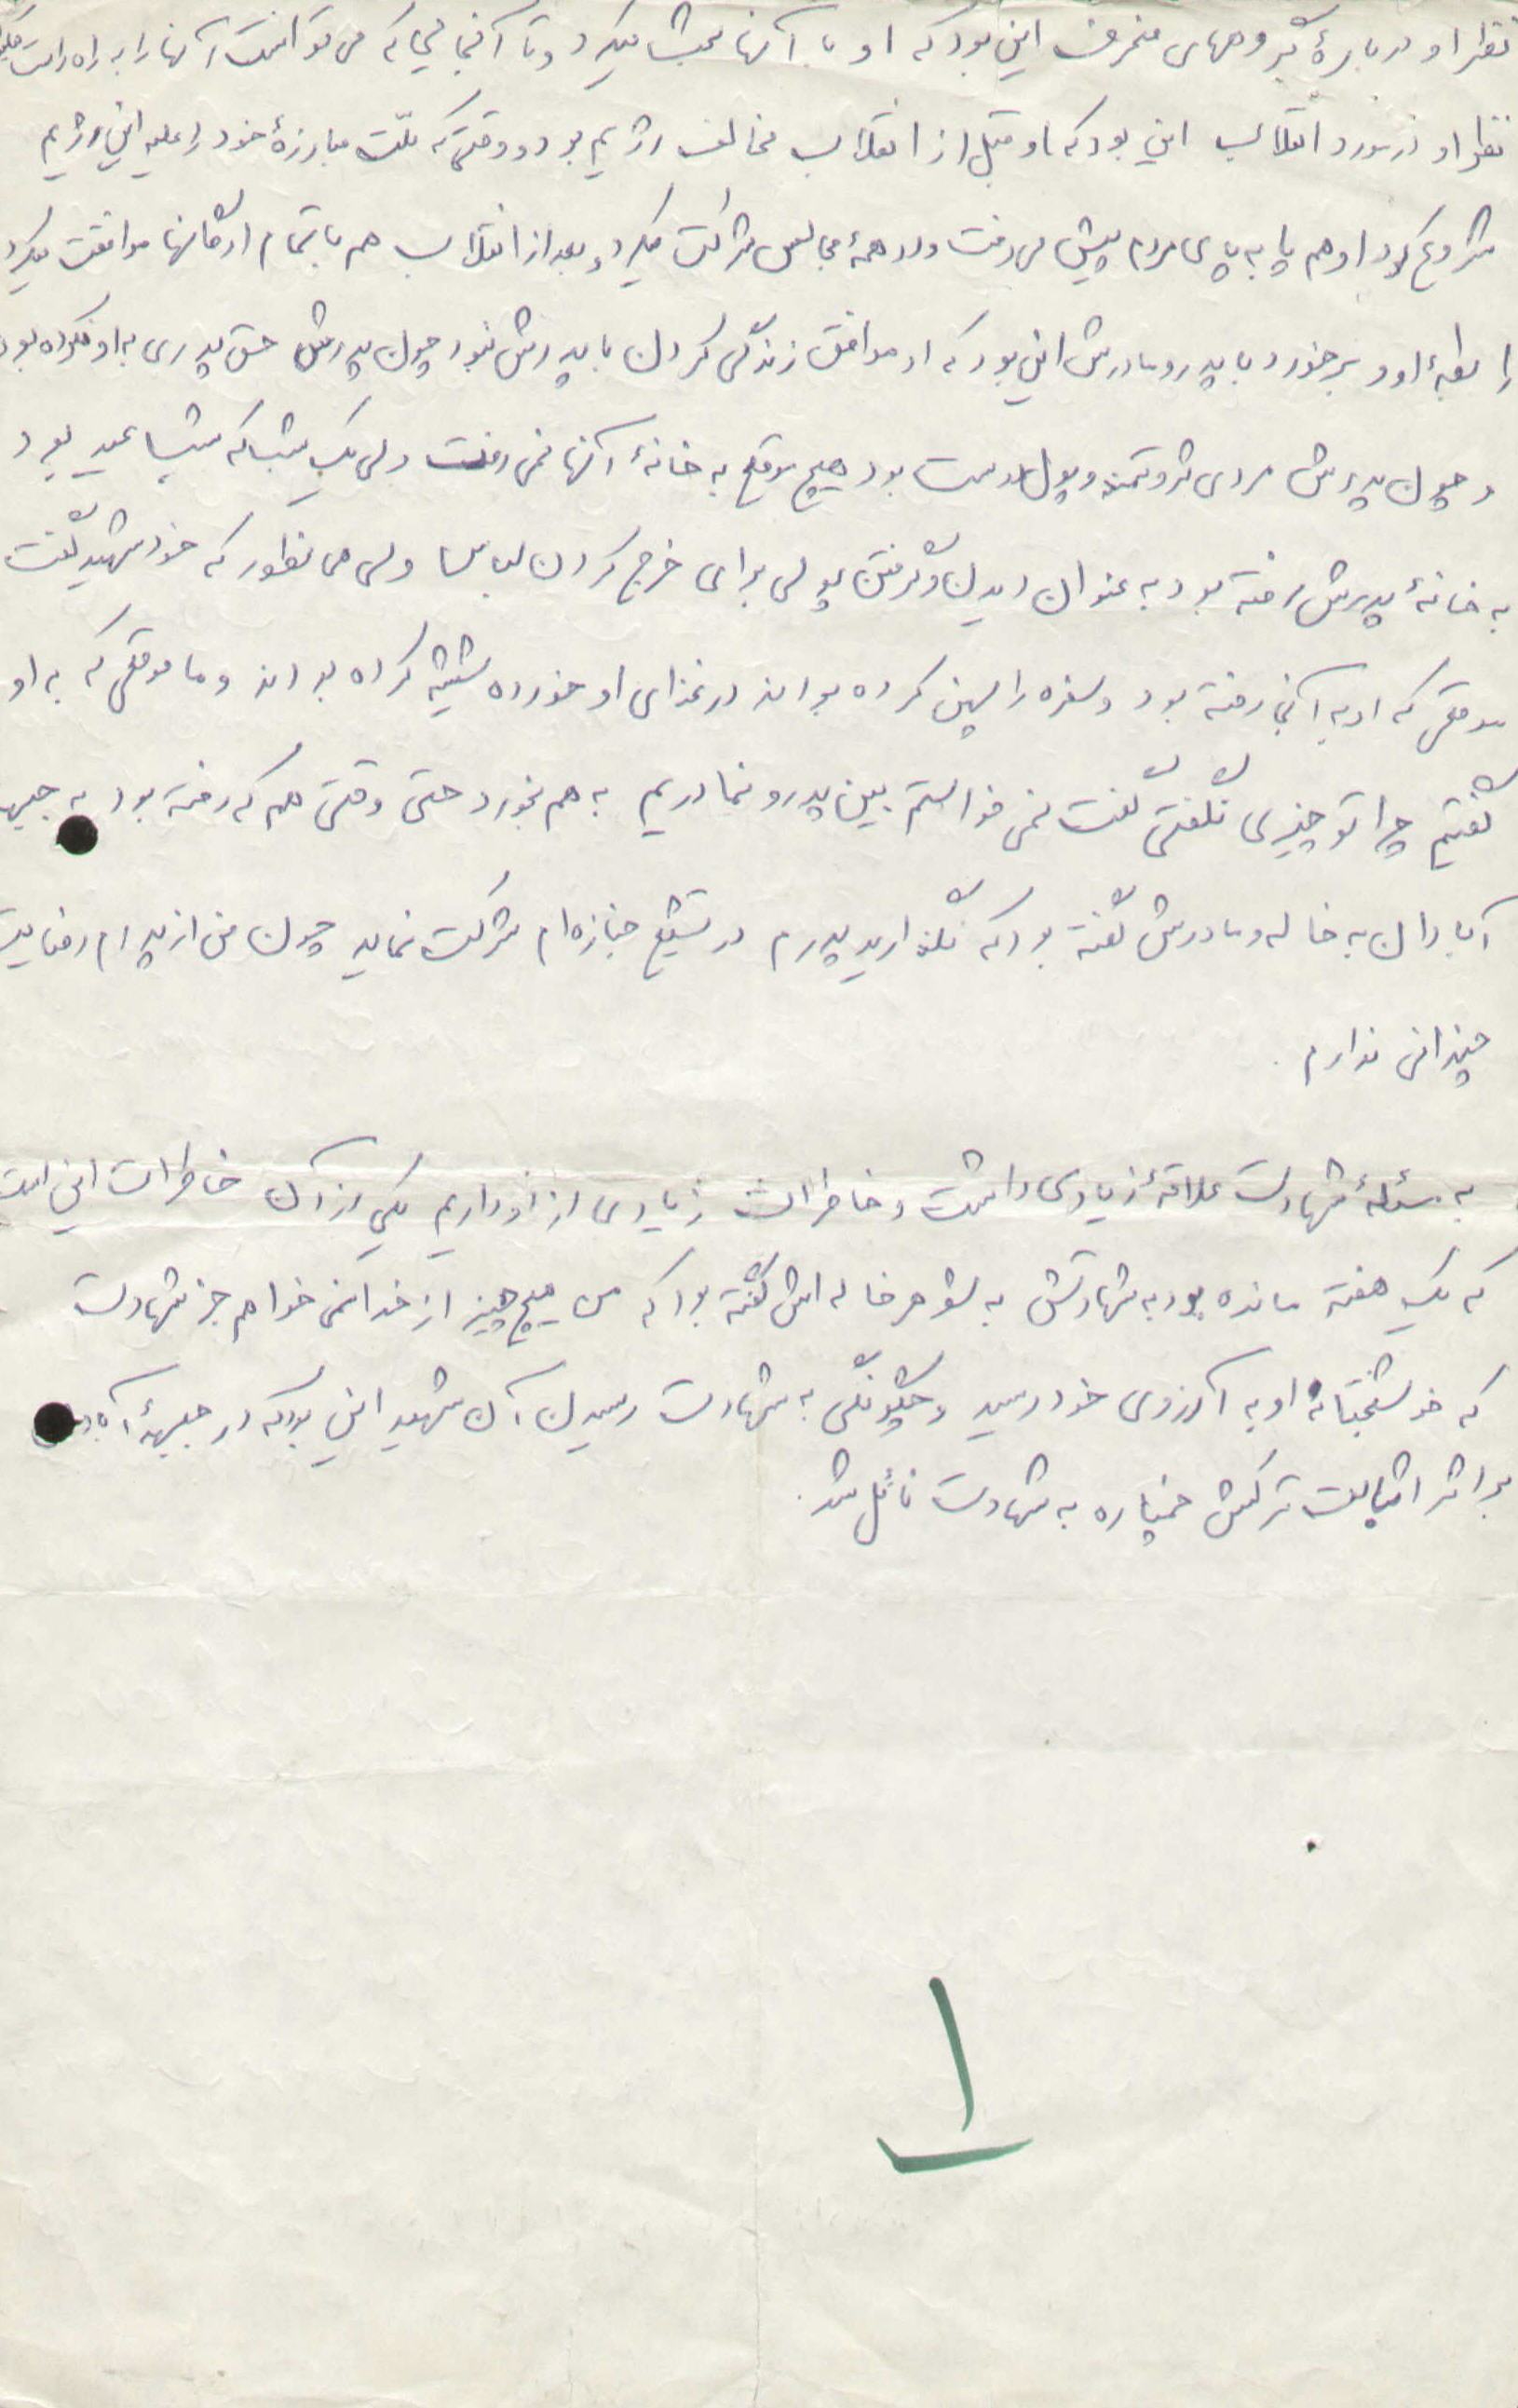 نظر او درباره گروههای منحرف این بود که او با آنها بحث میکرد و تا آنجایی که می توانست آنها را به راه راست
نظر او در مورد انقلاب این بود که او قبل از انقلاب مخالف رژیم بود و وقتی که ملّت مبارزهٔ خود را علیه این رژیم
شروع کرد او هم پا به پای مردم پیش می رفت و در همهٔ مجالس شرکت میکرد و بعد از انقلاب هم با تمام ارگانها موافقت میکرد
رابطهٔ او و برخورد با پدر و مادرش این بود که او موافق زندگی کردن با پدرش نبود چون پدرش حق پدری به او نکرده بود
و چون پدرش مردی ثروتمند و پول دوست بود هیچ موقع به خانهٔ آنها نمی رفت ولی یک شب که شب عید بود
به خانهٔ پدرش رفته بود به عنوان دیدن و گرفتن پولی برای خرج کردن لباس ولی همانطور که خود شهید گفت
موقعی که او به آنجا رفته بود و سفره را پهن کرده بودند در غذای او خورده شیشه کرده بودند و ما موقعی که به او
گفتیم چرا تو چیزی نگفتی گفت نمی خواستم بین پدر و نمادریم به هم بخورد حتی وقتی هم که رفته بود به جبهه
آبادان به خاله و مادرش گفته بود که نگذارید پدرم در تشیع جنازه ام شرکت نماید چون من از پدرم رضایت
چندانی ندارم .
به مسئلهٔ شهادت علاقهٔ زیادی داشت و خاطرات زیادی از او داریم یکی از آن خاطرات این است
که یک هفته مانده بود به شهادتش به شوهر خاله اش گفته بود که من هیچ چیز از خدا نمی خواهم جز شهادت
که خوشبختانه او به آرزوی خود رسید و چگونگی به شهادت رسیدن آن شهید این بود که در جبههٔ
بر اثر اثابت ترکش خمپاره به شهادت نائل شد .
۱